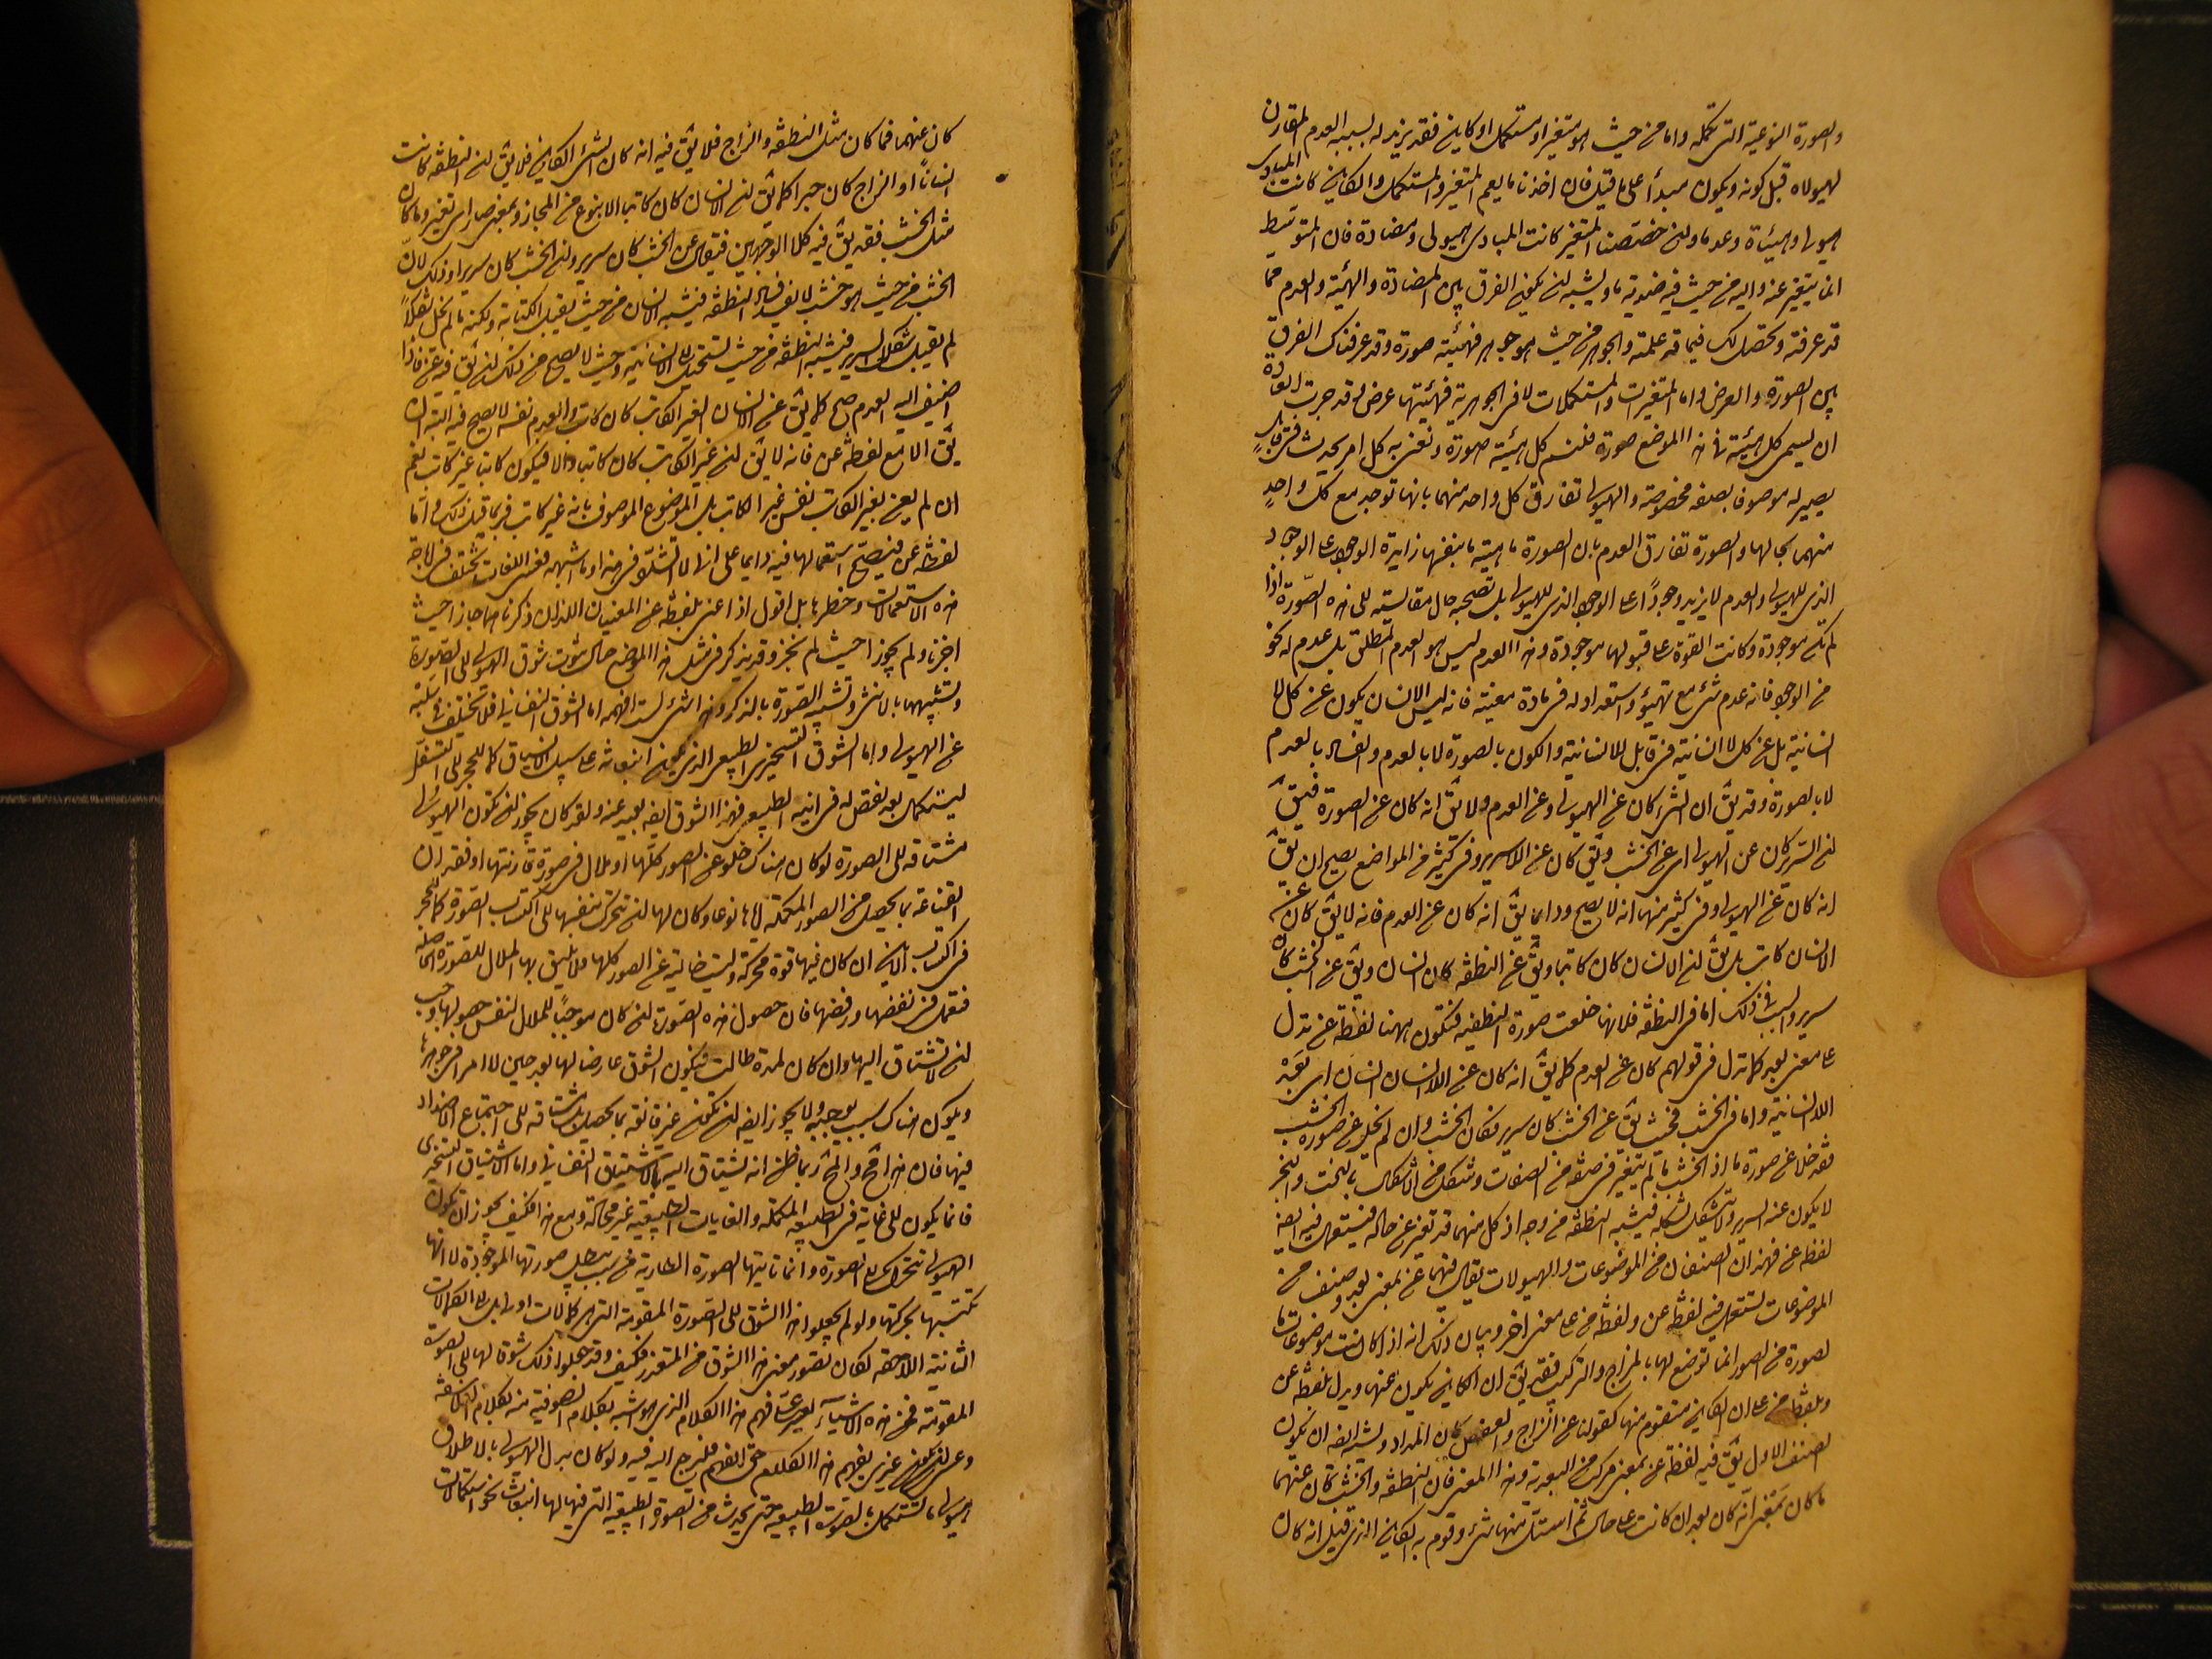 والصورة النوعية التى تكمله واما من حيث هو متغير او مستكمل او كاين فقد يزيد له بسببه العدم المقارن
لهيولاه قبل كونه ويكون مبدأ على ما قيل فان اخذنا ما يعم المتغير والمستكمل والكاين كانت المبادى
هيولى وهيئاة وعدما ولئن خصصنا المتغير كانت المبادى هيولى ومضادة فان المتوسط
انما يتغير عنه واليه من حيث فيه ضدية ما ويشبه ان تكون الفرق بين المضادة والهيئة والعدم مما
قد عرفته وتحصل لك فيما قد علمته والجوهر من حيث هو جوهر فهيئته صورة وقد عرفناك الفرق
بين الصورة والعرض واما المتغيرات والمستكملات لا فى الجوهرية فهيئتها عرض وقد جرت العادة
ان يسمى كل هيئة فى هذا الموضع صورة فلنسم كل هيئة صورة ونعنى به كل امر يحدث فى قابل
يصير له موصوفا بصفة مخصوصة والهيولى تفارق كل واحد منهما بانها توجد مع كل واحد
منهما بحالها والصورة تفارق العدم بان الصورة ماهية ما بنفسها زايدة الوجود على الوجود
الذى للهيولى والعدم لا يزيد وجودا على الوجود الذى للهيولى بل تصحبه حال مقايسته الى هذه الصورة اذا
لم تكن موجودة وكانت القوة على قبولها موجودة وهذا العدم ليس هو العدم المطلق بل عدم له نحو
من الوجود فانه عدم شئ مع تهيؤ واستعداد له فى مادة معينة فانه ليس الانسان يكون عن كل لا
انسانية بل عن كل لا انسانية فى قابل للانسانية والكون بالصورة لا بالعدم والفساد بالعدم
لا بالصورة وقد يق ان الشئ كان عن الهيولى وعن العدم ولا يق انه كان عن الصورة فيق
ان السرير كان عن الهيولى اى عن الخشب ويق كان عن اللاسرير وفى كثير من المواضع يصح ان يق
انه كان عن الهيولى وفى كثير منها انه لا يصح ودايما يق انه كان عن العدم فانه لا يق كان عن
الانسان كاتب بل يق ان الانسان كان كاتبا ويق عن النطفة كان انسان ويق عن الخشب كان
سرير والسبب فى ذلك اما فى النطفة فلانها خلعت صورة النطفية فتكون ههنا لفظة عن تدل
على معنى بعد كما تدل فى قولهم كان عن العدم كما يق انه كان عن اللاانسان انسان اى بعد
اللاانسانية واما فى الخشب فحيث يق عن الخشب كان سرير فكان الخشب وان لم يخل عن صورة الخشب
فقد خلا عن صورة ما اذ الخشب ما لم يتغير فى صفة من الصفات وشكل من الاشكال بالنحت والنجر
لا يكون عنه السرير ولا يتشكل بشكله فيشبه النطفة من وجه اذ كل منهما قد تغير عن حاله فيستعمل فيه ايضا
لفظة عن فهذان الصنفان من الموضوعات والهيولات يقال فيهما عن بمعنى بعد وصنف من
الموضوعات يستعمل فيه لفظة عن ولفظة من على معنى اخر وبيان ذلك انه اذا كانت موضوعات ما
لصورة من الصور انما توضع لها بالمزاج والتركيب فقد يق ان الكاين يكون عنها ويدل بلفظة عن
وبلفظة من على ان الكاين متقوم منها كقولنا عن الزاج والعفص كان المداد ويشبه ايضا ان يكون
الصنف الاول يق فيه لفظة عن بمعنى مركب من البعدية وهذا المعنى فان النطفة والخشب كان عنهما
ما كان بمعنى انه كان بعد ان كانت على حال ثم استل منها شئ وقوم به الكاين الذى قيل انه كان
كان عنهما فما كان مثل النطفة والزاج فلا يق فيه انه كان الشئ الكاين فلا يق ان النطفة كانت
انسانا او الزاج كان حبرا كما يق ان الانسان كان كاتبا الا بنوع من المجاز وبمعنى صار اى تغير وما كان
مثل الخشب فقد يق فيه كلا الوجهين فيقال عن الخشب كان سرير وان الخشب كان سريرا وذلك لان
الخشب من حيث هو خشب لا يفسد فساد النطفة فيشبه الانسان من حيث يقبل الكتابة ولكنه ما لم يخل شكلا
لم يقبل شكل السرير فيشبه النطفة من حيث تستحيل الى الانسانية وحيث لا يصح من ذلك ان يق فيه عن فاذا
اضيف اليه العدم صح كما يق عن الانسان الغير الكاتب كان كاتب والعدم نفسه لا يصح فيه البتة ان
يق الا مع لفظة عن فانه لا يق ان غير الكاتب كان كاتبا والا فيكون كاتبا غير كاتب نعم
ان لم يعن بغير الكاتب نفس غير الكاتب بل الموضوع الموصوف بانه غير كاتب فربما قيل ذلك واما
لفظة عن فيصح استعمالها فيه دايما على انى لا اتشدد فى هذا وما اشبهه فعسى اللغات تختلف فى اباحة
هذه الاستعمالات وحظرها بل اقول اذا عنى بلفظة عن المعنيان اللذان ذكرناهما جازا حيث
اجزنا ولم يجوزا حيث لم نجز وقد يذكر فى مثل هذا الموضع حال ثبوت شوق الهيولى الى الصورة
وتشبيهها بالانثى وتشبيه الصورة بالذكر وهذا شئ لست افهمه اما الشوق النفسانى فلا تختلف فى سلبه
عن الهيولى واما الشوق التسخيرى الطبيعى الذى يكون انبعاثه على سبيل الانسياق كما للحجر الى التسفل
ليستكمل بعد نقص له فى اينه الطبيعى فهذا الشوق ايضا بعيد عنه ولقد كان يجوز ان تكون الهيولى
مشتاقة الى الصورة لو كان هناك خلو عن الصور كلها او ملال فى صورة قارنتها او فقدان
القناعة بما يحصل من الصور المكملة اياها نوعا وكان لها ان تتحرك بنفسها الى اكتساب الصورة كما للحجر
فى اكتساب الاين ان كان فيها قوة محركة وليست خالية عن الصور كلها فلا يليق بها الملال للصورة الحاصلة
فتعمل فى نقضها ورفضها فان حصول هذه الصورة ان كان موجبا للملال لنفس حصولها وجب
ان لا تشتاق اليها وان كان لمدة طالت فيكون الشوق عارضا لها بعد حين لا امرا فى جوهرها
ويكون هناك سبب يوجبه ولا يجوز ايضا ان تكون غير قانعة بما يحصل بل مشتاقة الى اجتماع الاضداد
فيها فان هذا مح والمح ربما ظن انه يشتاق اليه بالاشتياق النفسانى واما الاشتياق التسخيرى
فانما يكون الى غاية فى الطبيعة المكملة والغايات الطبيعية غير محالة ومع هذا فكيف يجوز ان تكون
الهيولى تتحرك الى الصورة وانما تاتيها الصورة الطارية من سبب يبطل صورتها الموجودة لا انها
تكتسبها بحركتها ولو لم يجعلوا هذا الشوق الى الصورة المقومة التى هى كمالات اولى بل الى الكمالات
الثانية اللاحقة لكان تصور معنى هذا الشوق من المتعذر فكيف وقد جعلوا ذلك شوقا لها الى الصورة
المقومة فمن هذه الاشياء يعسر على فهم هذا الكلام الذى هو اشبه بكلام الصوفية منه بكلام الفلاسفة
وعسى ان يكون غيرى يفهم هذا الكلام حق الفهم فليرجع اليه فيه ولو كان بدل الهيولى بالاطلاق
هيولى ما تستكمل بالصورة الطبيعية حتى يحدث من الصورة الطبيعية التى فيها لها انبعاث نحو استكمالات